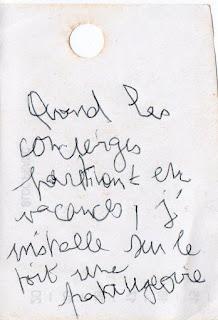 Quand les
concierges
partiront en
vacances, j'
installe sur le
toit une
pataugeoire